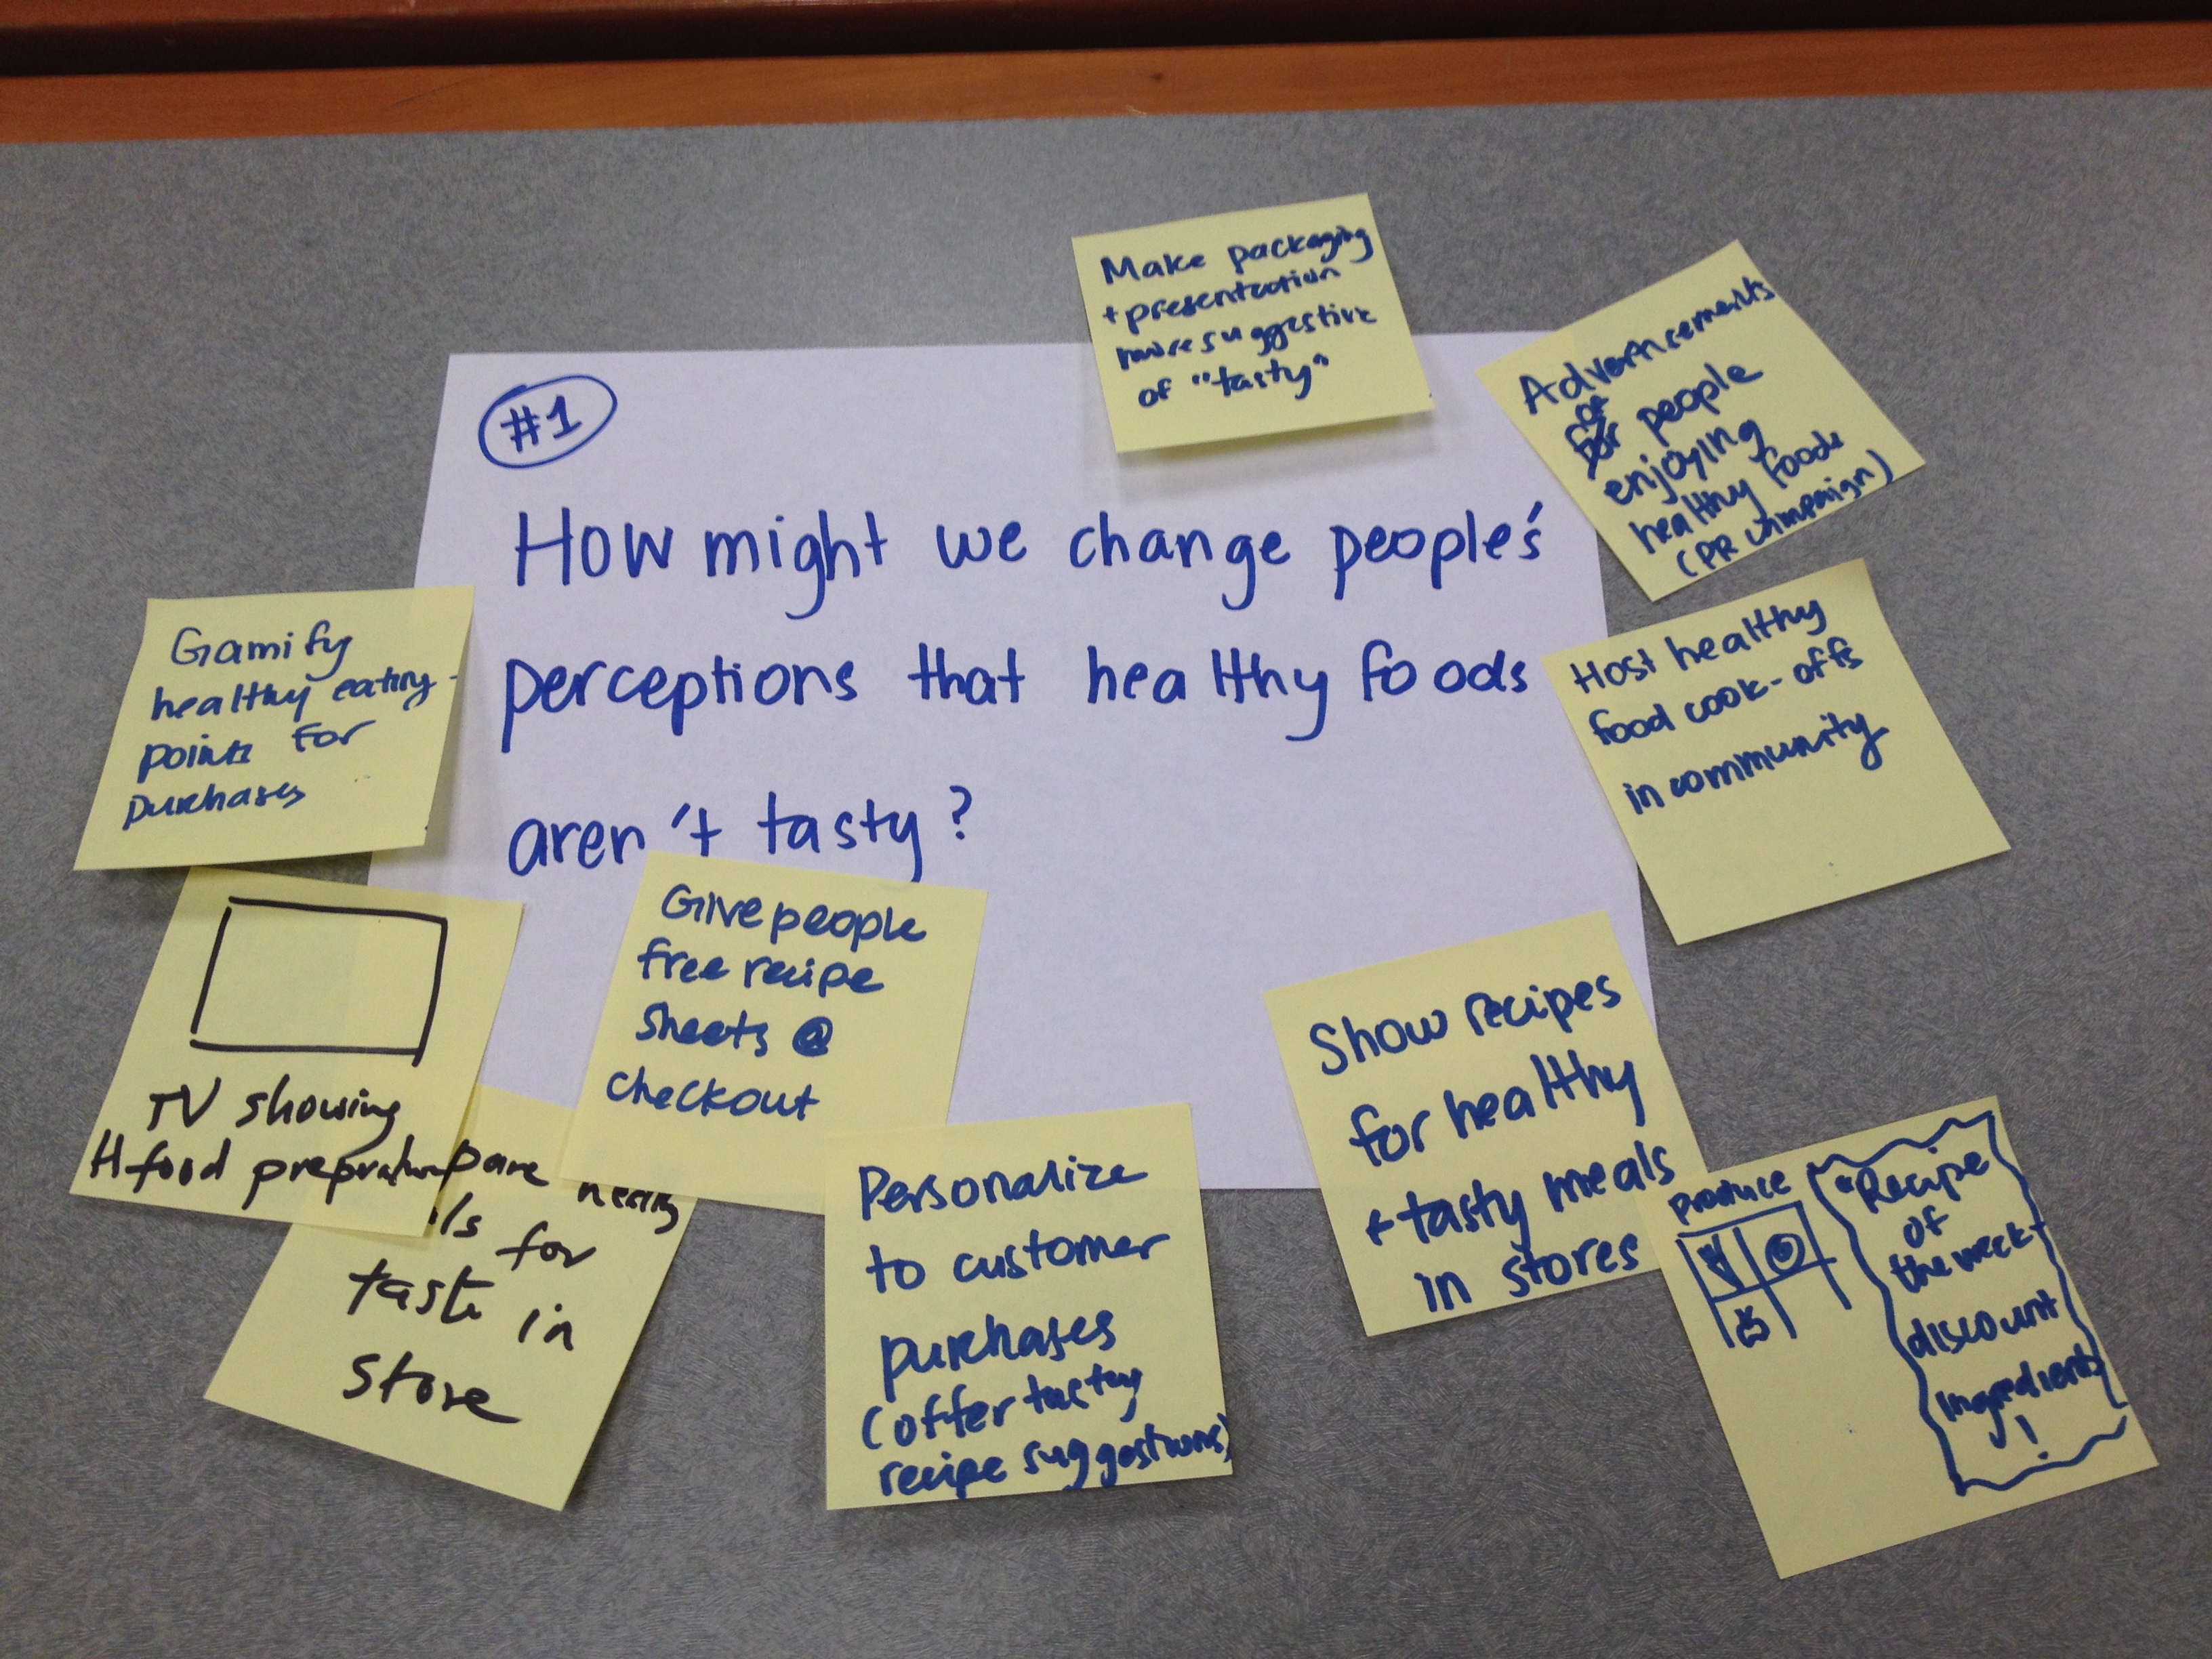 #1
How might we change people's
perceptions that healthy foods
aren't tasty?
Make packaging
+ presentation
more suggestive
of "tasty"
Advertisements
of
for people
enjoying
healthy foods
(PR campaign)
Host healthy
food cook-offs
in community
Gamify
healthy eating -
points for
purchases
TV showing
H food prepration
pare healthy
ls for
taste in
store
Give people
free recipe
sheets @
checkout
Personalize
to customer
purchases
(offer tasty
recipe suggestions)
Show recipes
for healthy
+ tasty meals
in stores
Produce
"Recipe
of
the week +
discount
ingredients
!